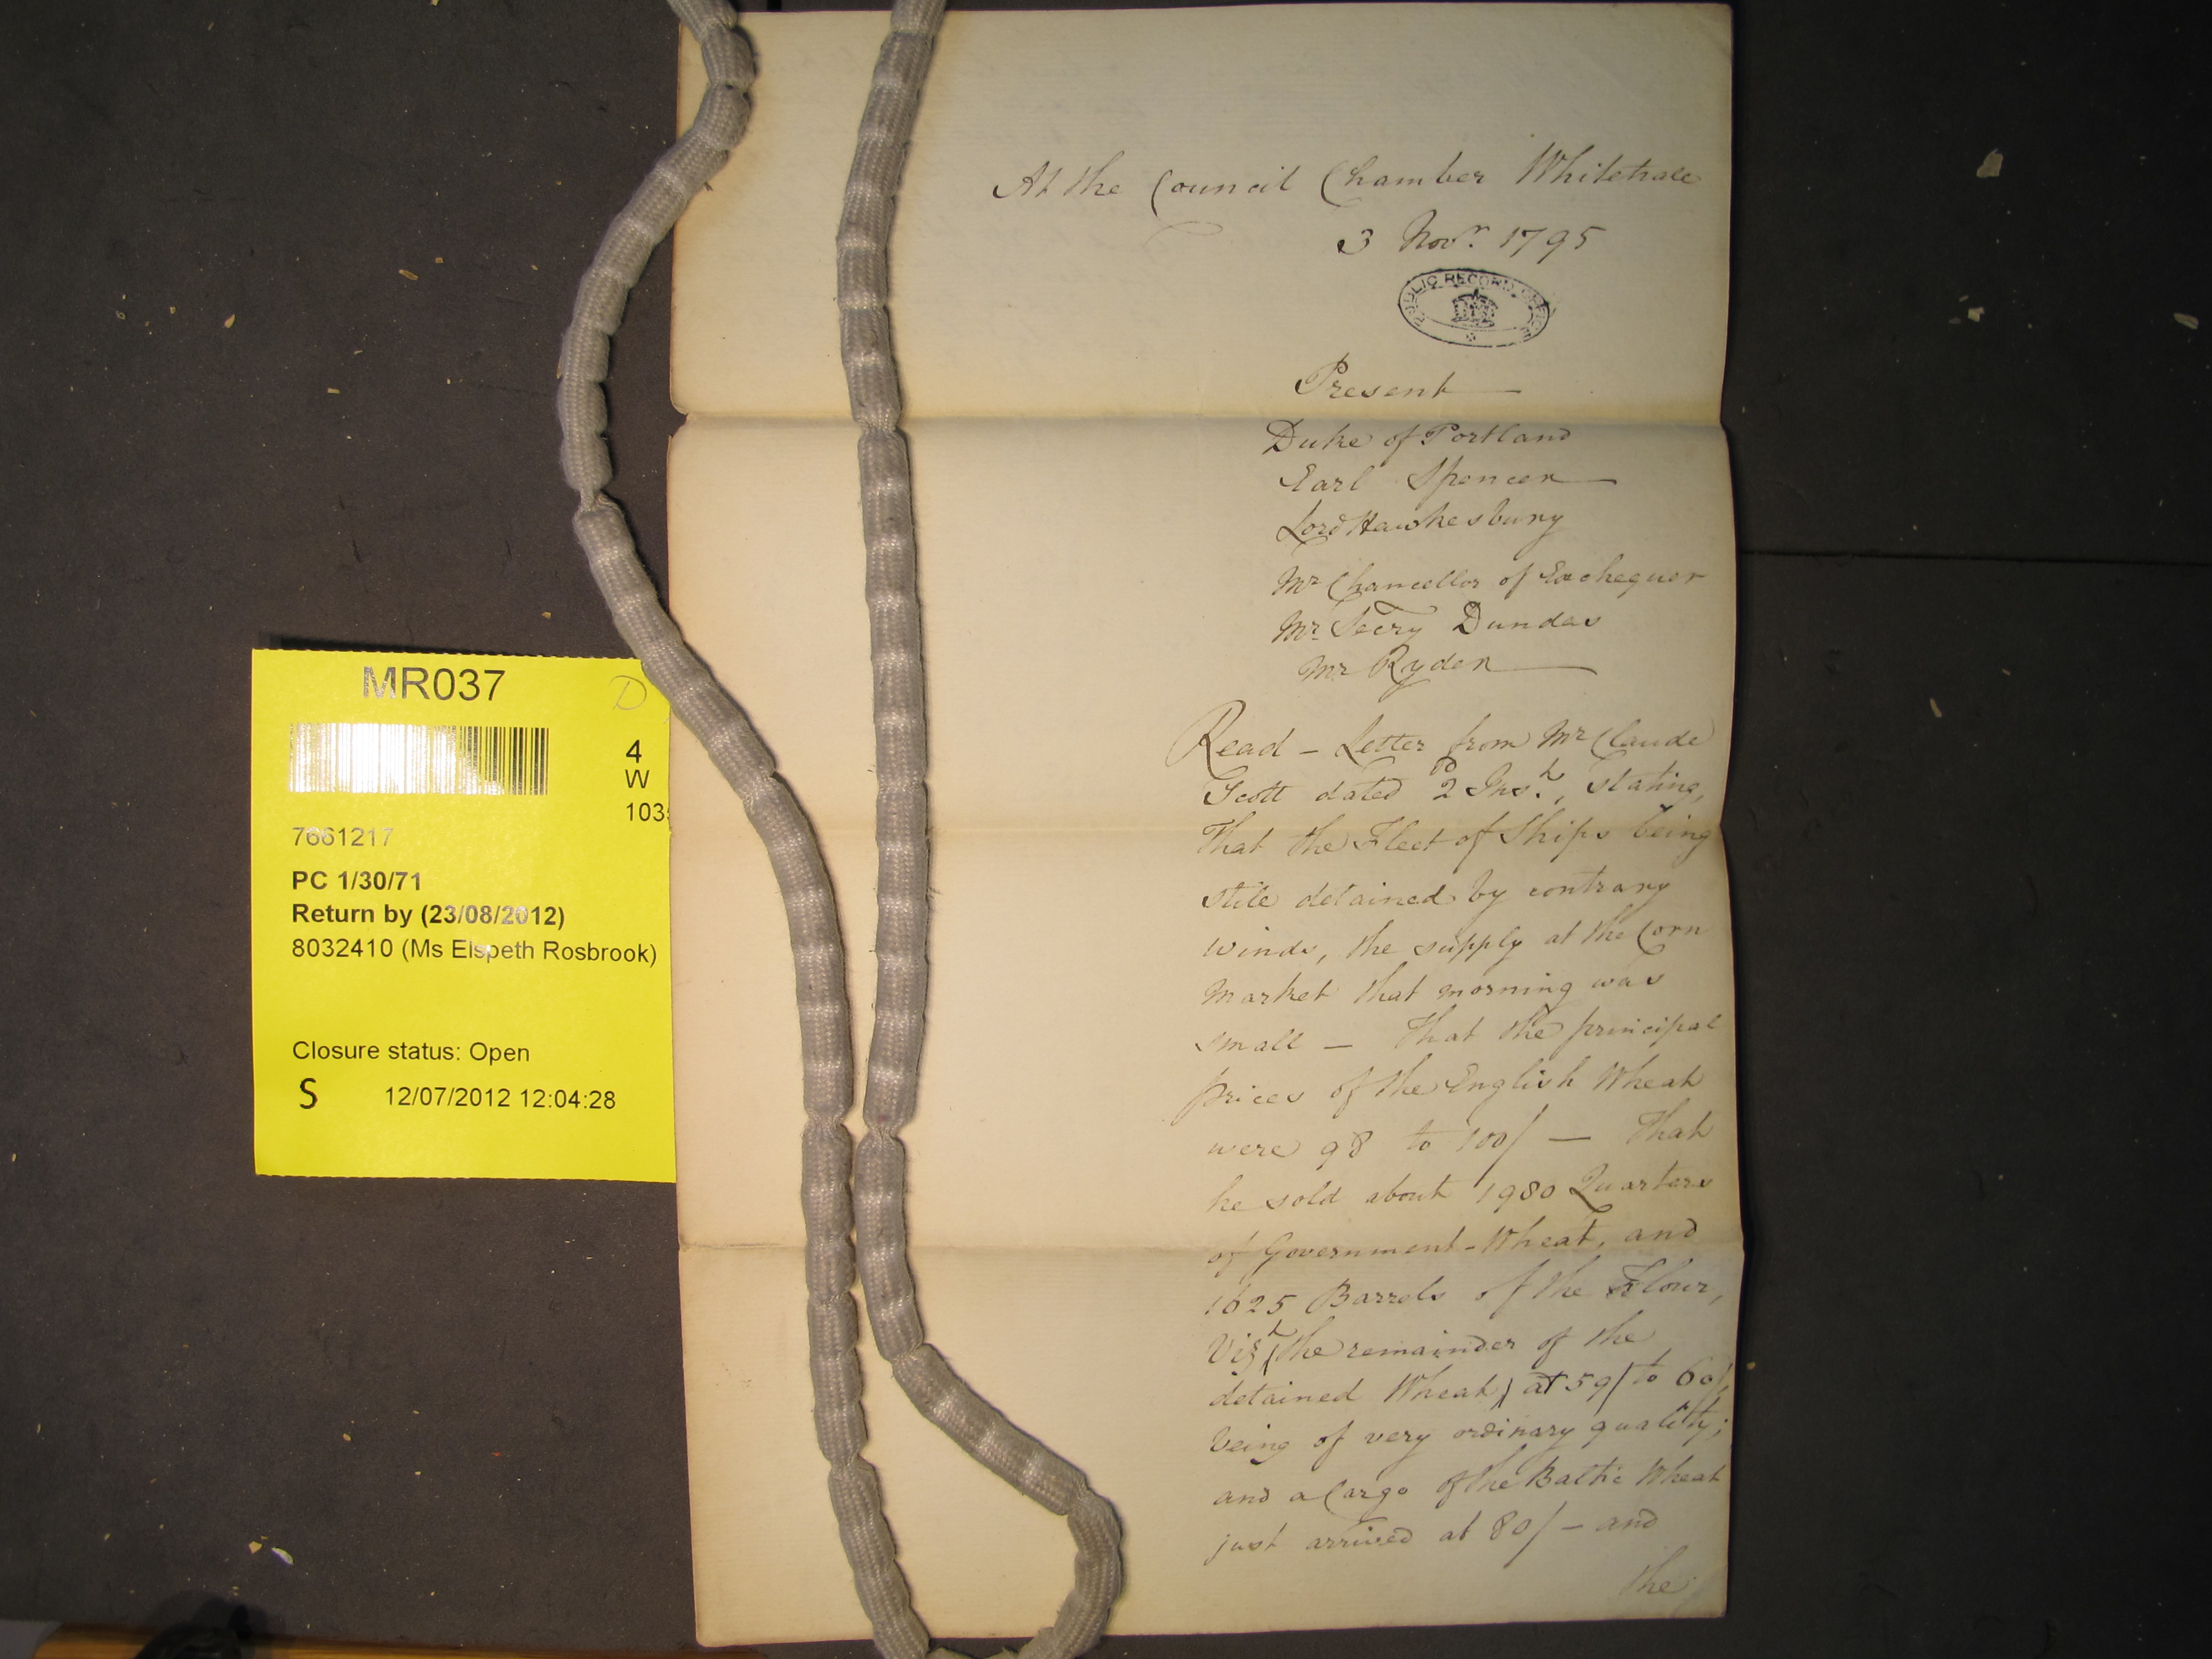 At the Council Chamber Whitehall
3 Novr. 1795
PUBLIC RECORD OFFICE
Present
Duke of Portland
Earl Spencer
Lord Hawkesbury
Mr Chancellor of Exchequer
Mr. Secry Dundas
Mr Ryder
Read - Letter from Mr Claude
Scott dated 2d Inst., stating,
That the Fleet of Ships being
still detained by contrary
winds, the supply at the Corn
Market that morning was
small - That the principal
prices of the English Wheat
were 98 to 100/ - That
he sold about 1980 Quarters
of Government-Wheat, and
1625 Barrels of the Flour,
Vizt (the remainder of the
detained Wheat) at 59/ to 60/
being of very ordinary quality;
and a Cargo of the Baltic Wheat
just arrived at 80/ - and
the
MR037
D
4
W
7661217
PC 1/30/71
Return by (23/08/2012)
8032410 (Ms Elspeth Rosbrook)
Closure status: Open
S 12/07/2012 12:04:28